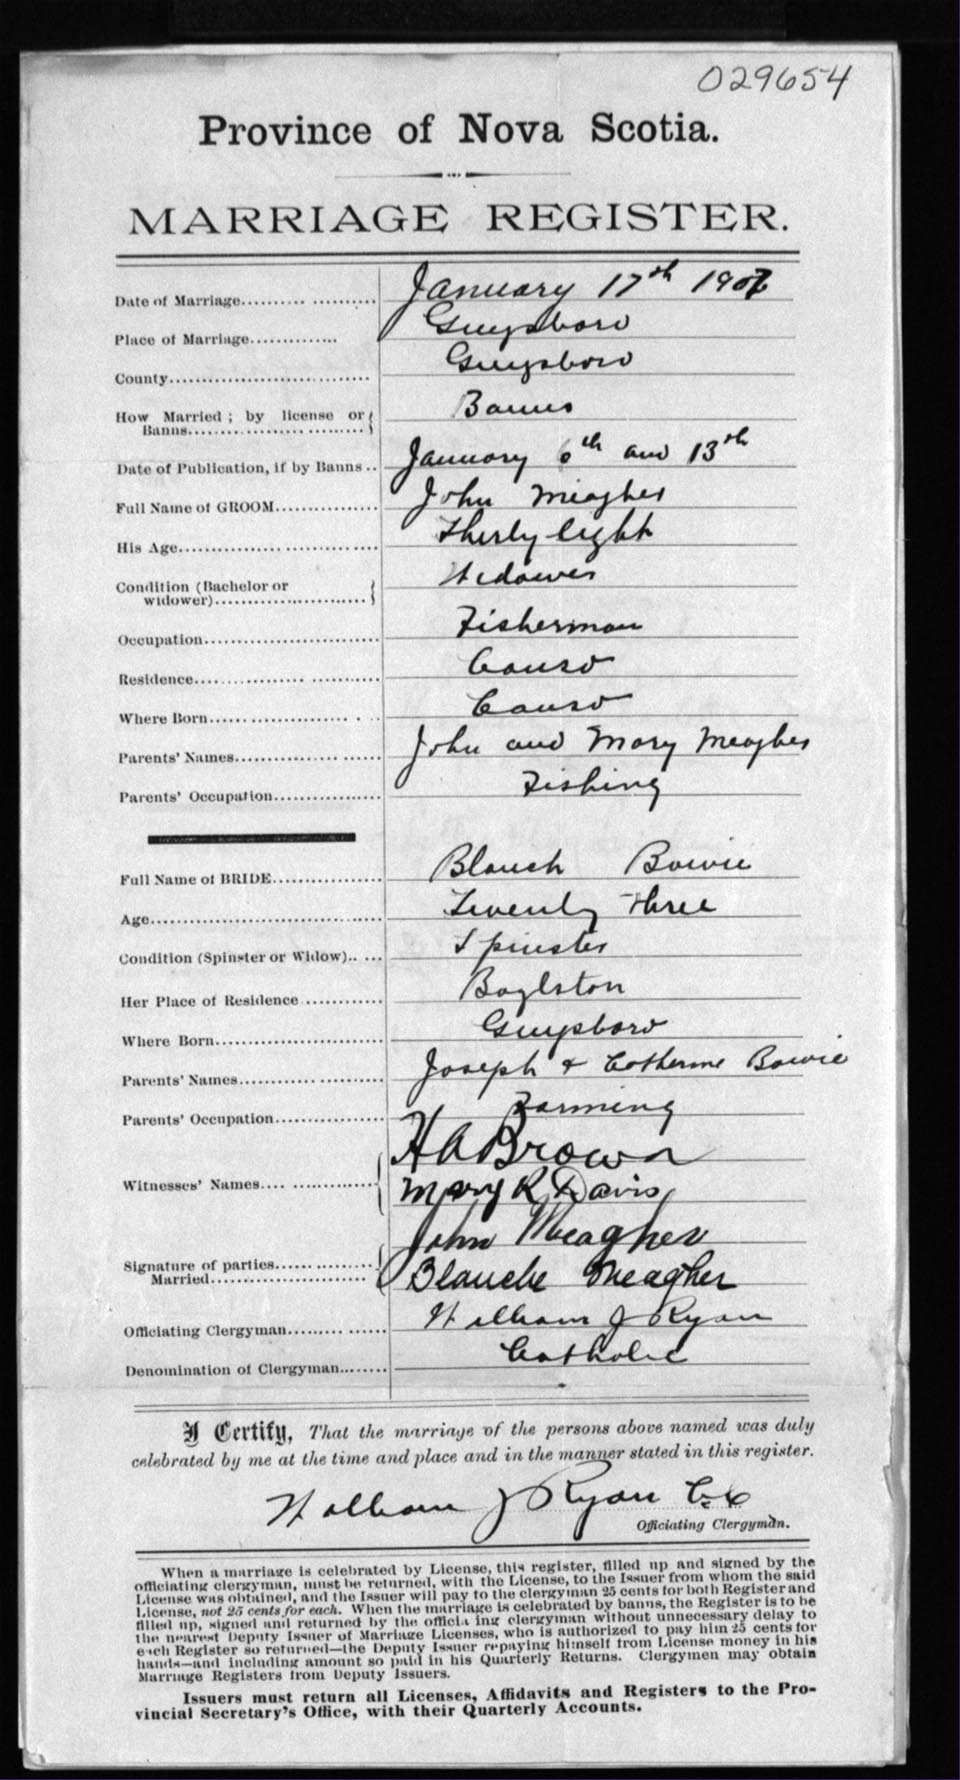 029654
Province of Nova Scotia.
MARRIAGE REGISTER.
Date of Marriage.......... ........... January 17th 1907
Place of Marriage............. Guysboro
County............................. Guysboro
How Married ; by license or Banns............................ Banns
Date of Publication, if by Banns .. January 6th and 13th
Full Name of GROOM................ John Meagher
His Age............................... Thirty eight
Condition (Bachelor or widower)........................ Widower
Occupation........................... Fisherman
Residence............................ Canso
Where Born...................... . .. Canso
Parents' Names...................... John and Mary Meagher
Parents' Occupation................. Fishing
Full Name of BRIDE................. Blanch Bowie
Age.................................. Twenty three
Condition (Spinster or Widow).. ... Spinster
Her Place of Residence ............ Boylston
Where Born.......................... Guysboro
Parents' Names...................... Joseph & Catherine Bowie
Parents' Occupation................ Farming
Witnesses' Names.... .............. H A Brown
Mary R Davis
Signature of parties.................. John Meagher
Married......................... Blanche Meagher
Officiating Clergyman......... ...... William J Ryan
Denomination of Clergyman........ Catholic
I Certify, That the marriage of the persons above named was duly
celebrated by me at the time and place and in the manner stated in this register.
William J Ryan
Officiating Clergyman.
When a marriage is celebrated by License, this register, filled up and signed by the
officiating clergyman, must be returned, with the License, to the Issuer from whom the said
License was obtained, and the Issuer will pay to the clergyman 25 cents for both Register and
License, not 25 cents for each. When the marriage is celebrated by banns, the Register is to be
filled up, signed and returned by the officiating clergyman without unnecessary delay to
the nearest Deputy Issuer of Marriage Licenses, who is authorized to pay him 25 cents for
each Register so returned—the Deputy Issuer repaying himself from License money in his
hands—and including amount so paid in his Quarterly Returns. Clergymen may obtain
Marriage Registers from Deputy Issuers.
Issuers must return all Licenses, Affidavits and Registers to the Pro-
vincial Secretary's Office, with their Quarterly Accounts.